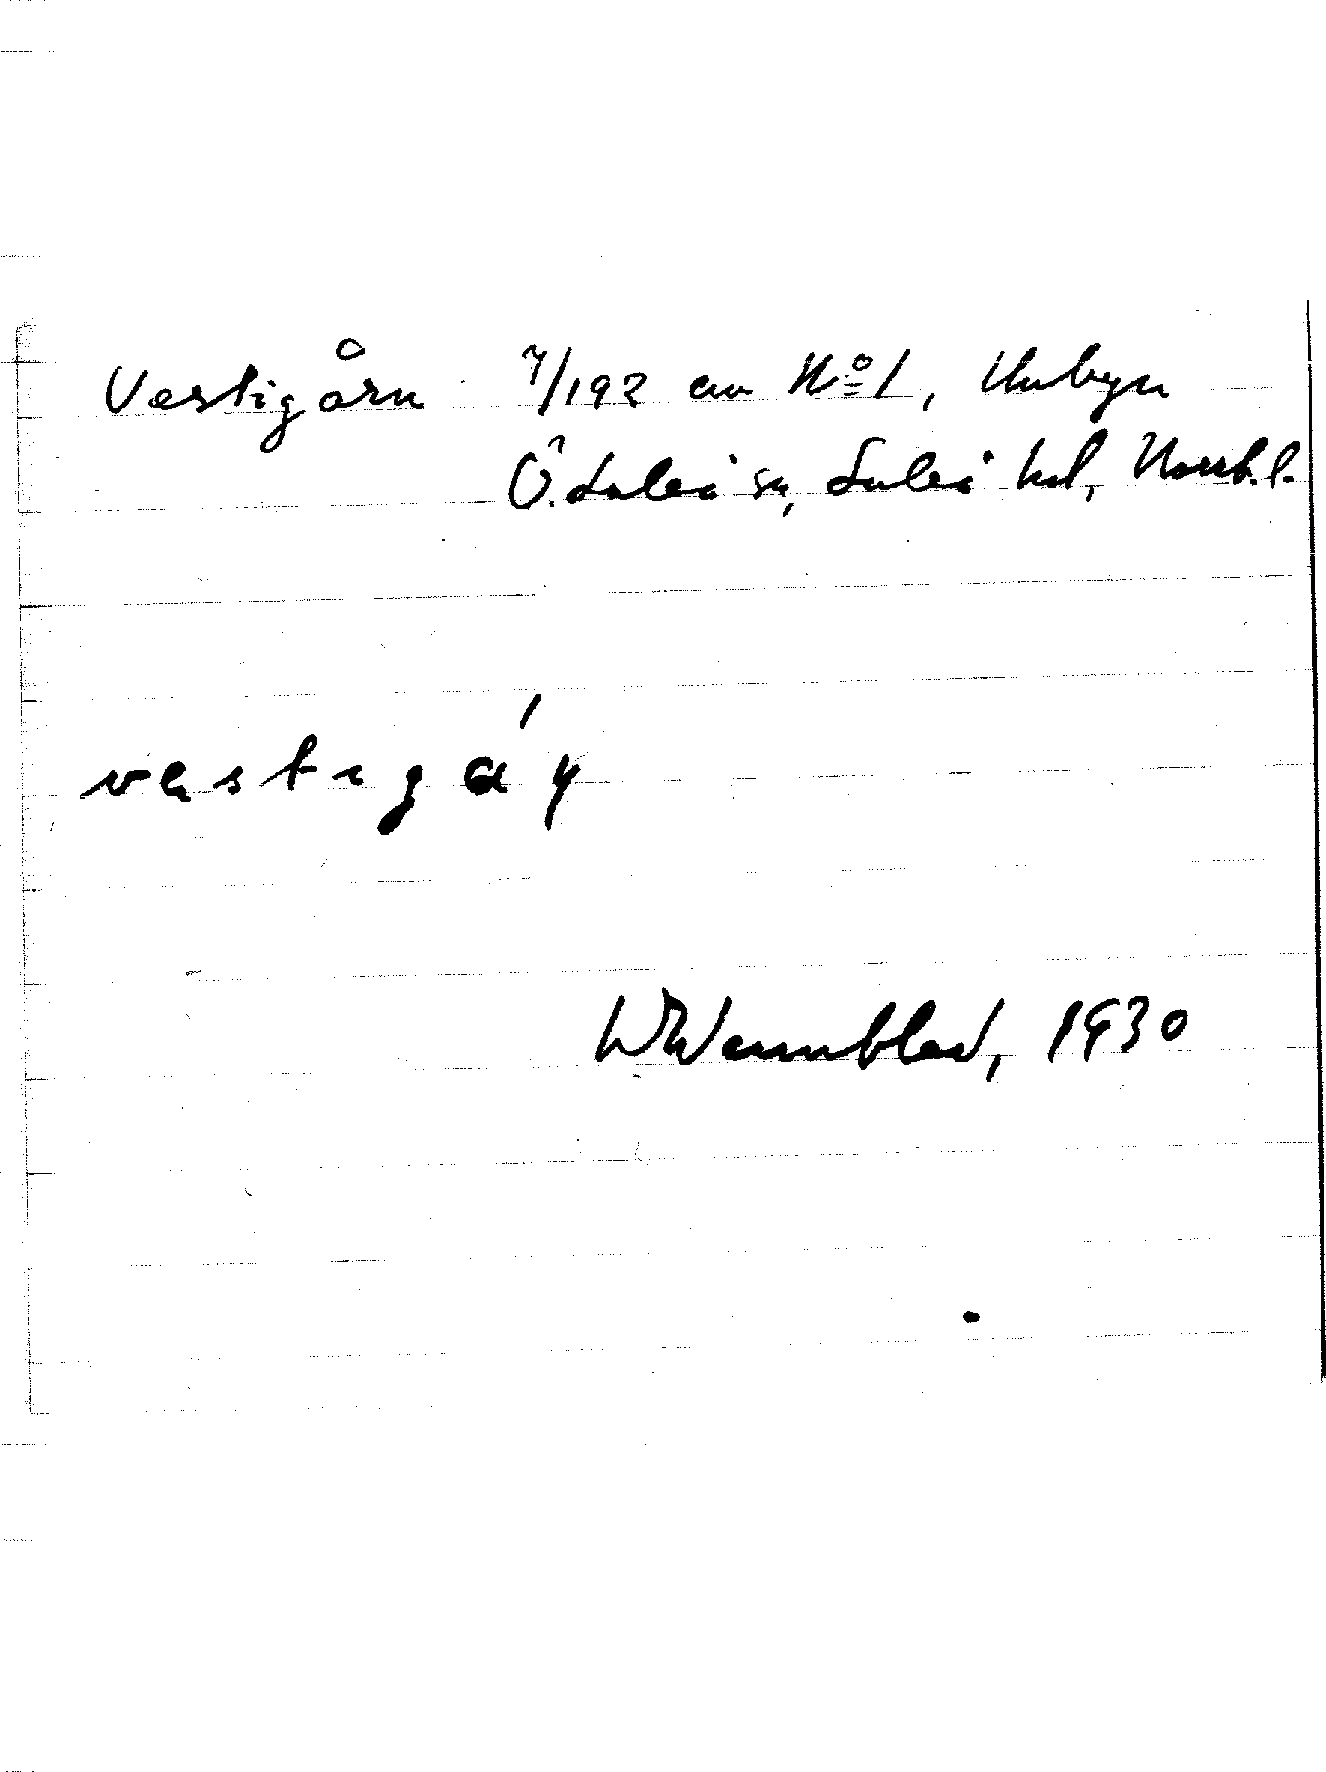 Vestigårn 7/192 av No 1, Unbyn
Ö. Luleå sn, Luleå hd, Norrb. l.
vestigáɳ
Wennblad, 1930